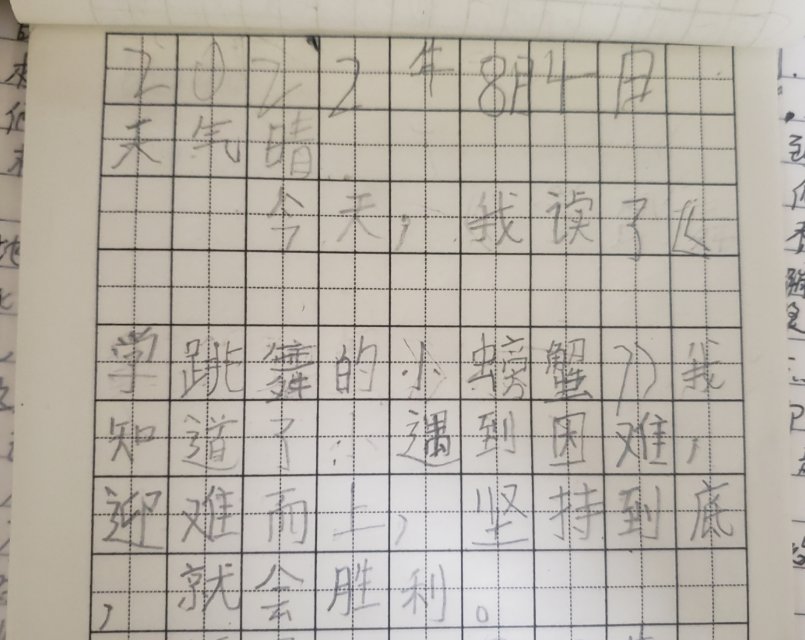 2022年8月4日
天气晴
今天，我读了《
学跳舞的小螃蟹》我
知道了：遇到困难，
迎难而上，坚持到底
，就会胜利。